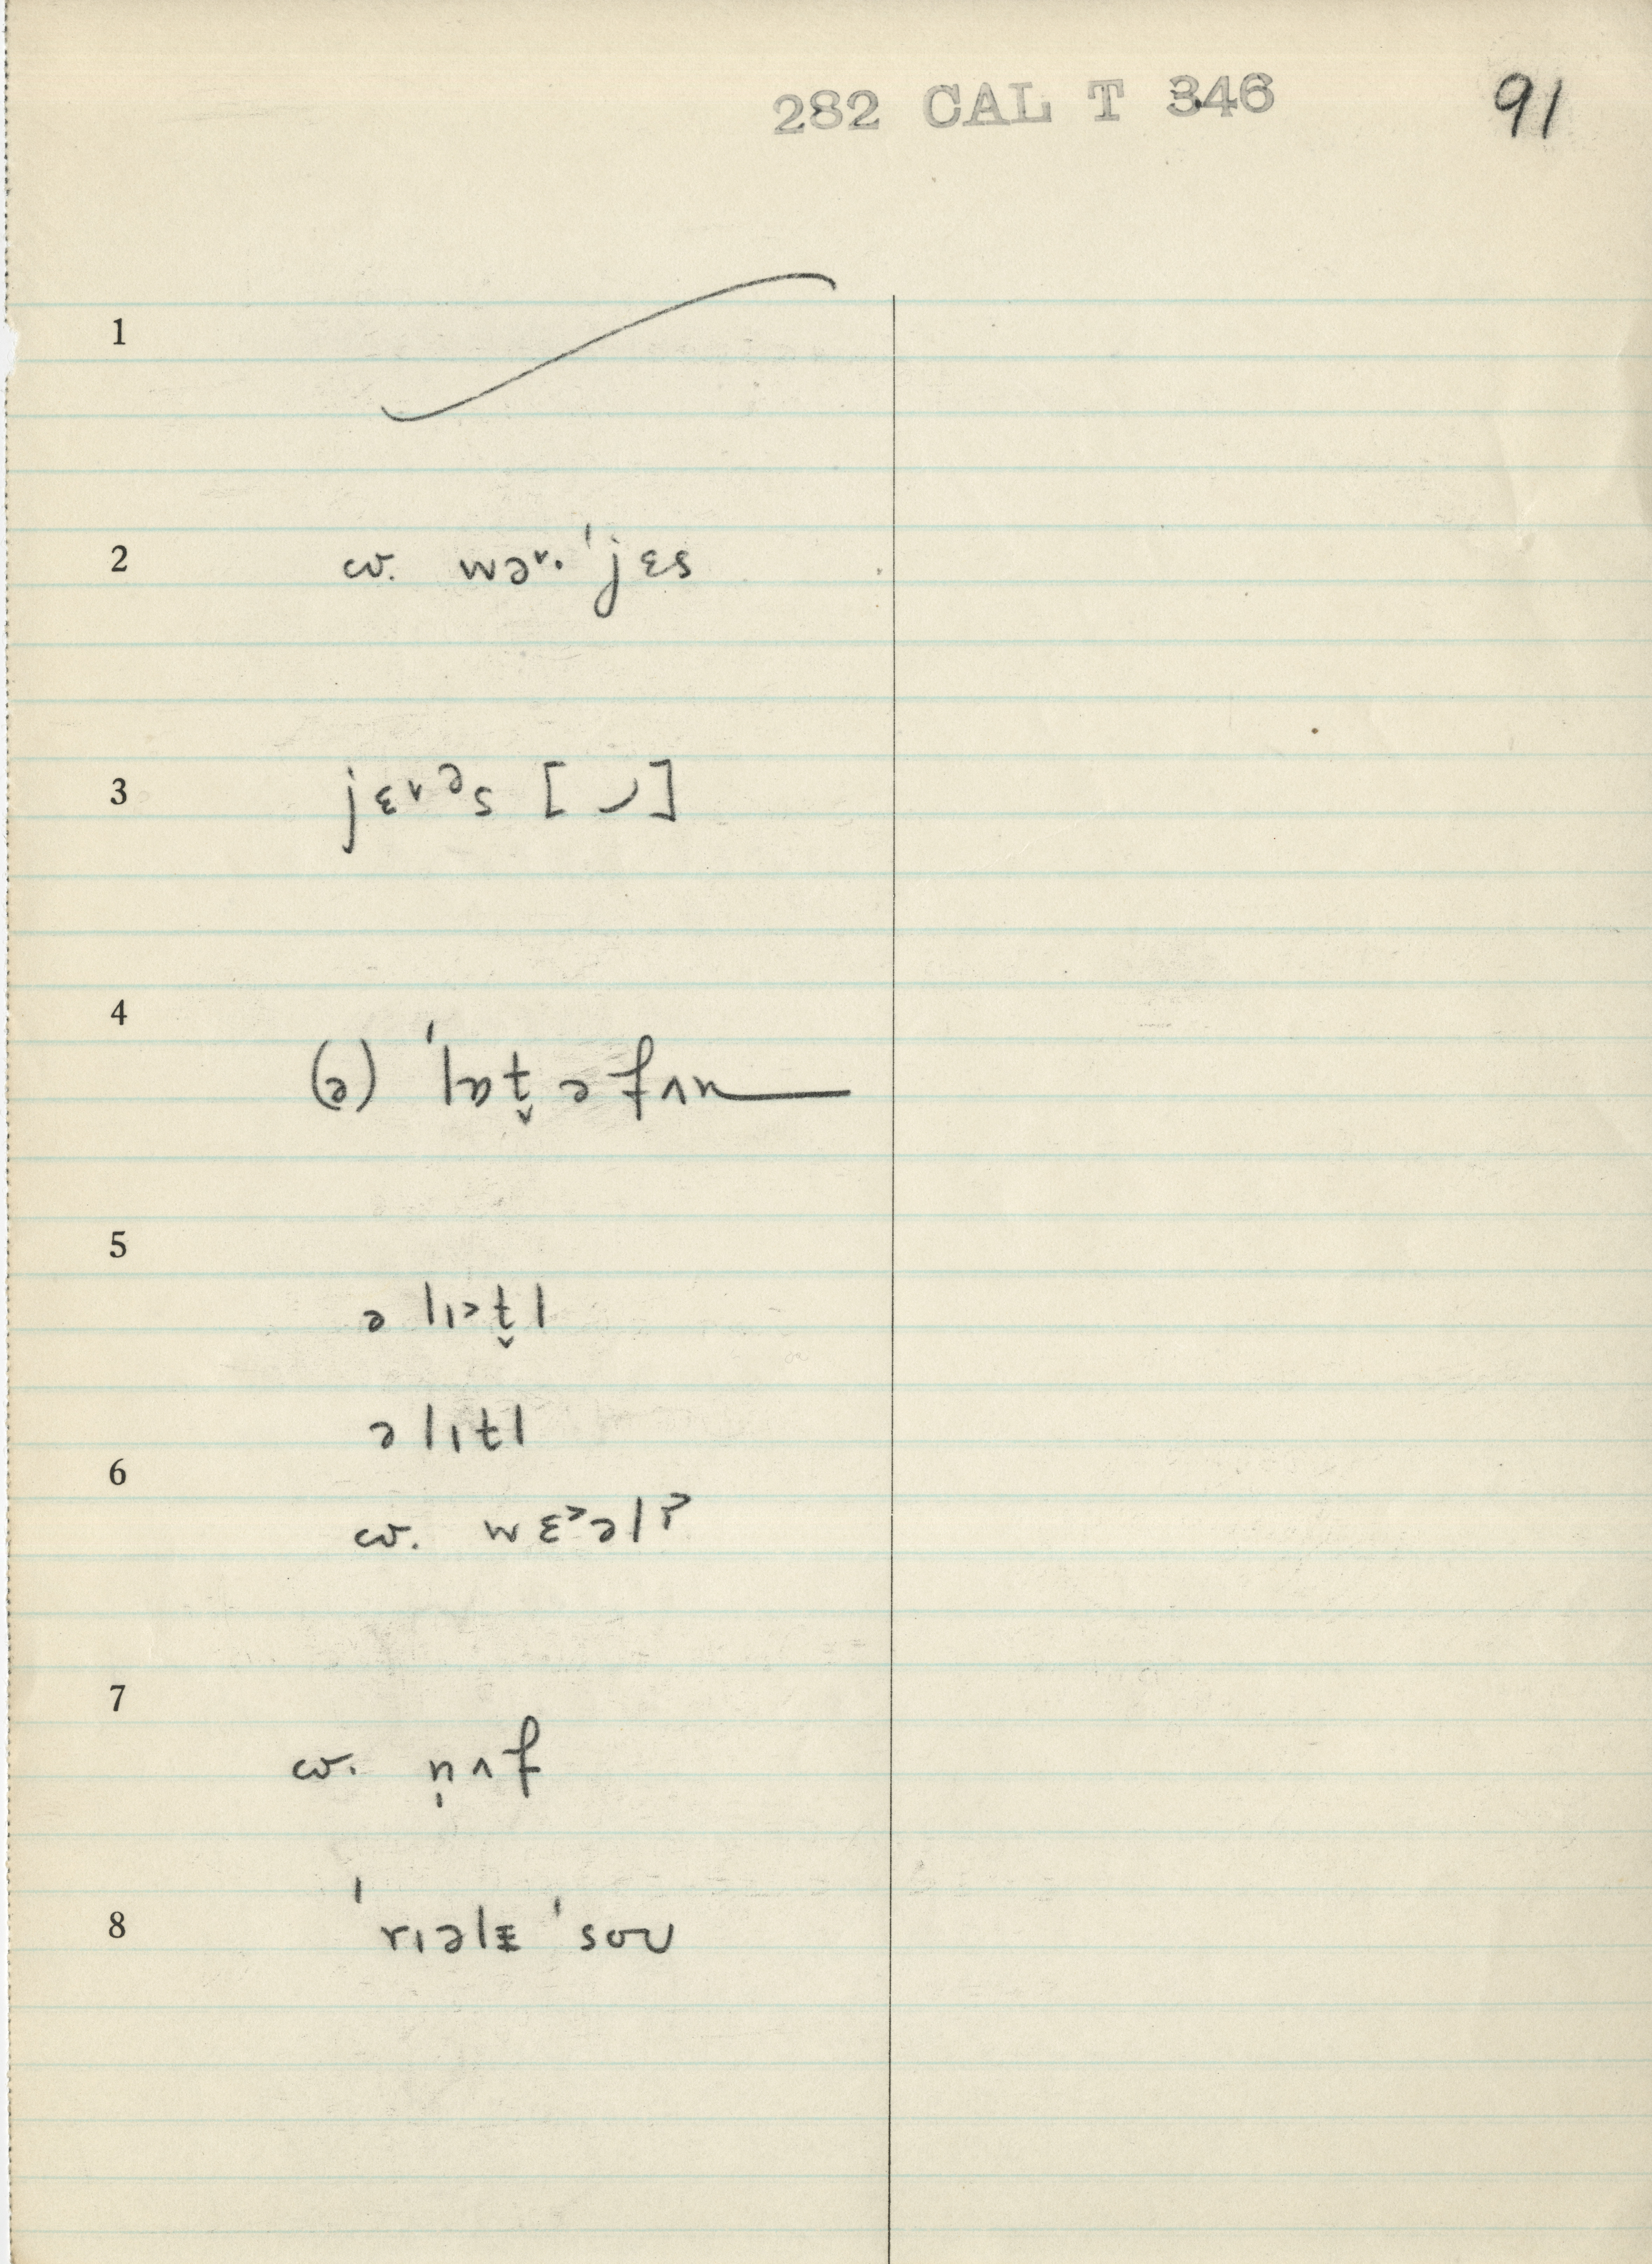 282 CAL T 346 91
1
2 cv. wə˞. ˈjɛs
3 jɛ˅ᵊs [ ]
4 (ə) ˈlɒt̬ ə fʌn
5
ə lɪ˃t̬l
ə lɪtl
6
cv. wɛ˃əl?
7
cv. n̩ʌf
8 ˈrɪəlɪ ˈsoʊ